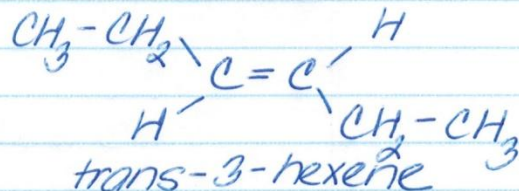 CH₃-CH₂ H
C=C
H CH₂-CH₃
trans-3-hexene